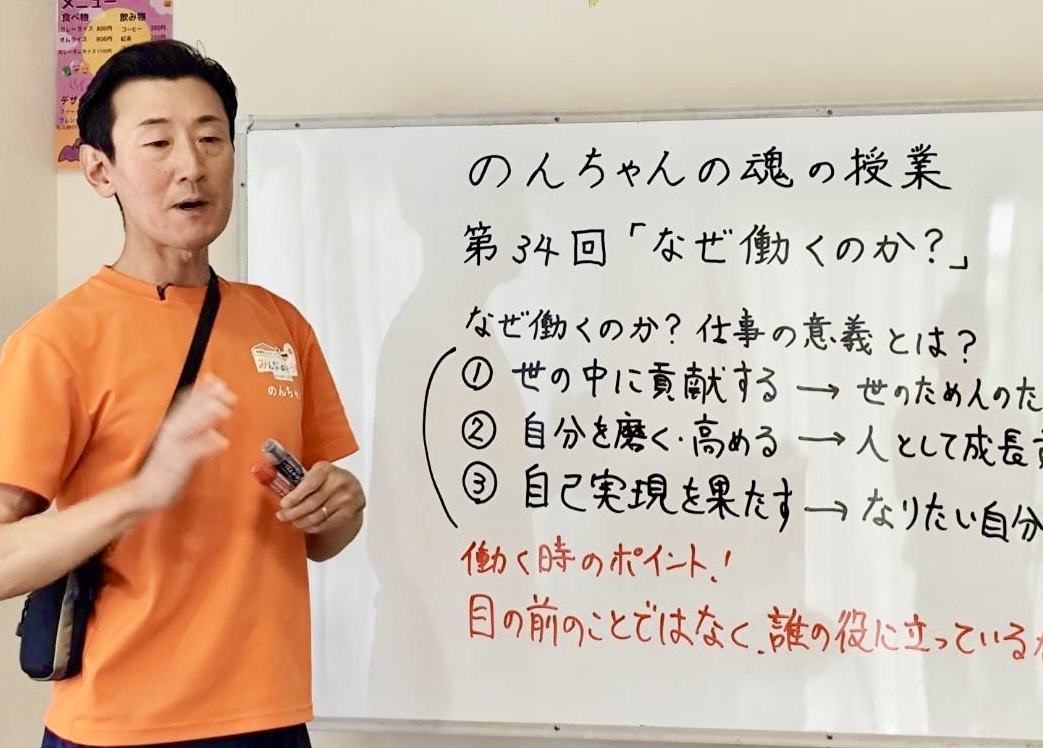 メニュー
食べ物 飲み物
カレーライス 800円 コーヒー
オムライス 800円 紅茶
デザ
みんなの
のんちゃ
のんちゃんの魂の授業
第34回「なぜ働くのか？」
なぜ働くのか？仕事の意義とは？
① 世の中に貢献する → 世のため人のた
② 自分を磨く・高める → 人として成長
③ 自己実現を果たす → なりたい自分
働く時のポイント！
目の前のことではなく、誰の役に立っている